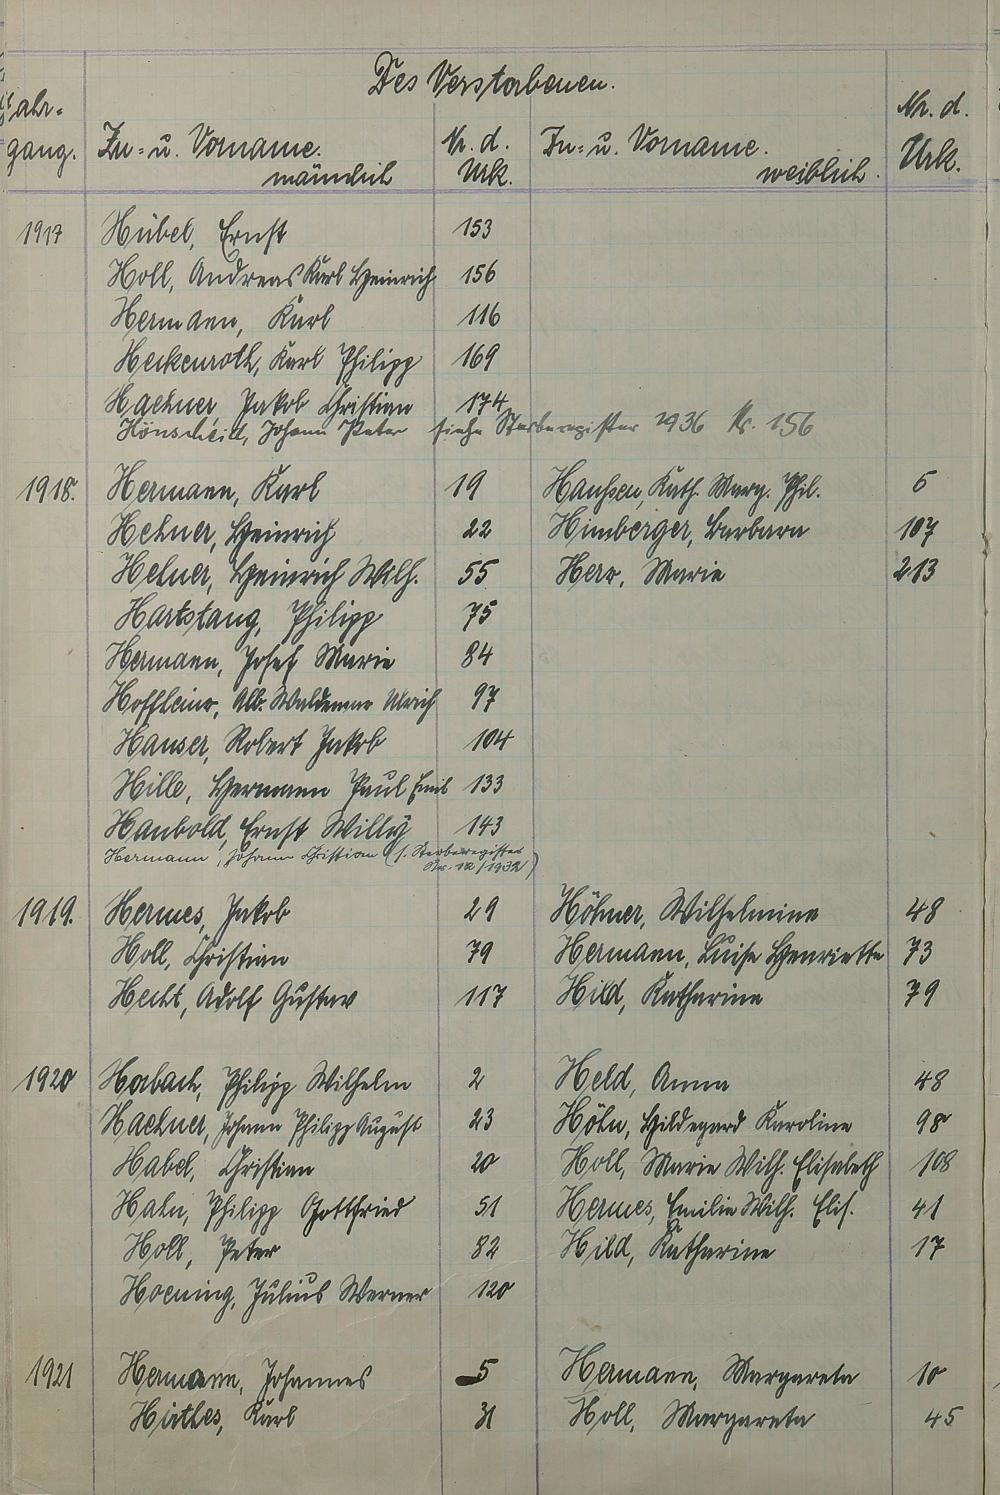 Des Verstorbenen.
Jahr-
gang.
Zu- u. Vorname.
männlich
Nr. d.
Urk.
Zu- u. Vorname.
weiblich.
Nr. d.
Urk.
1917 Hübel, Ernst 153
Holl, Andreas Karl Heinrich 156
Hermann, Karl 116
Heckenroth, Karl Philipp 169
Haehner Jakob Christian 174
Hönscheid, Johann Peter siehe Sterberegister 1936 Nr. 156
1918. Hermann, Karl 19 Hanssen, Kath. Marg. Phil. 6
Hehner, Heinrich 22 Himberger, Barbara 107
Hehner, Heinrich Wilh. 55 Herr, Marie 213
Hartstang, Philipp 75
Hermann, Josef Marie 84
Alb. Waldemar Ulrich 97
Hauser, Robert Jakob 104
Hille, Hermann Paul Emil 133
Haubold, Ernst Willy 143
Hermann, Johann Christian (s. Sterberegister
Nr. 12/1932)
1919. Hermes, Jakob 29 Höhner, Wilhelmine 48
Holl, Christian 79 Hermann, Luise Henriette 73
Hecht, Adolf Gustav 117 Hild, Katharina 79
1920 Horbach, Philipp Wilhelm 2 Held, Anna 48
Haehner, Johann Philipp August 23 Höhn, Hildegard Karoline 98
Habel, Christian 20 Holl, Marie Wilh. Elisabeth 108
Hahn, Philipp Gottfried 51 Hermes, Emilie Wilh. Elis. 41
Holl, Peter 82 Hild, Katharine 17
Hoening, Julius Werner 120
1921 Hermann, Johannes 5 Hermann, Margareta 10
Hirthes, Karl 31 Holl, Margareta 45